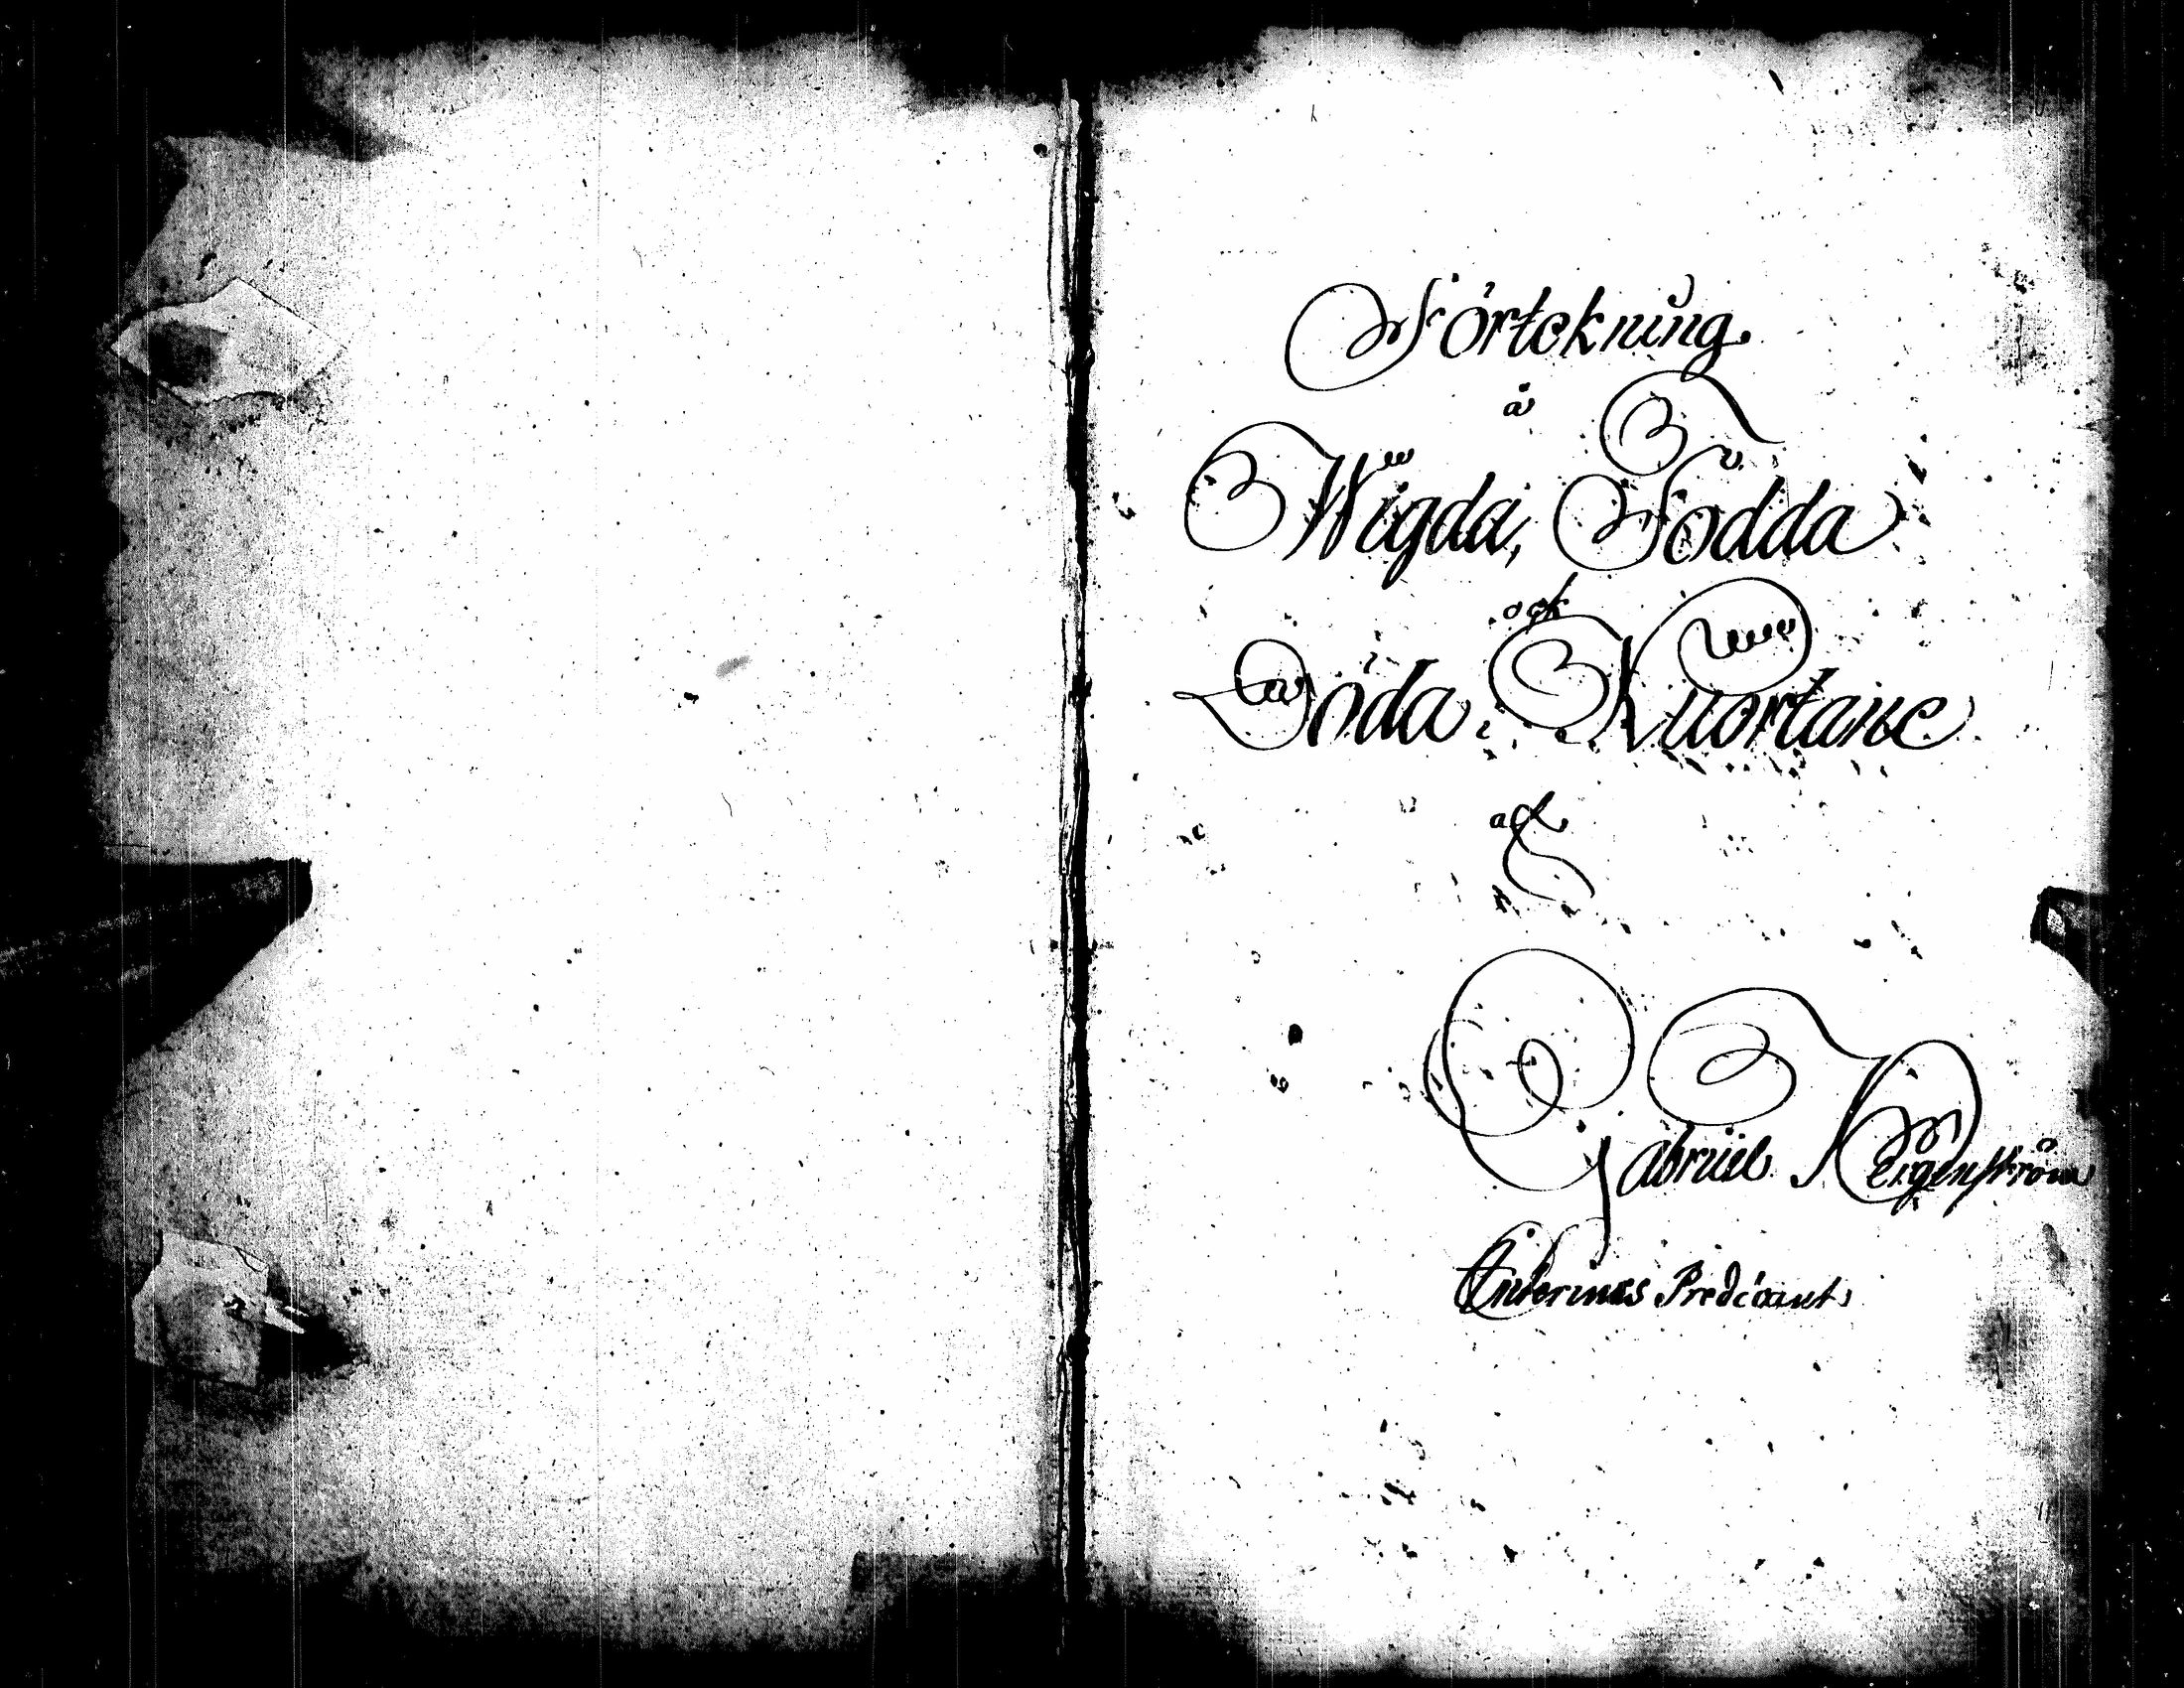 Förtekning
å
Wigda, Födda
ock
Döda i Kuortane
af
Gabriel Regenström
Interims Predicant